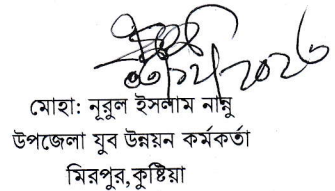 মোহা: নূরুল ইসলাম নান্নু
উপজেলা যুব উন্নয়ন কর্মকর্তা
মিরপুর,কুষ্টিয়া